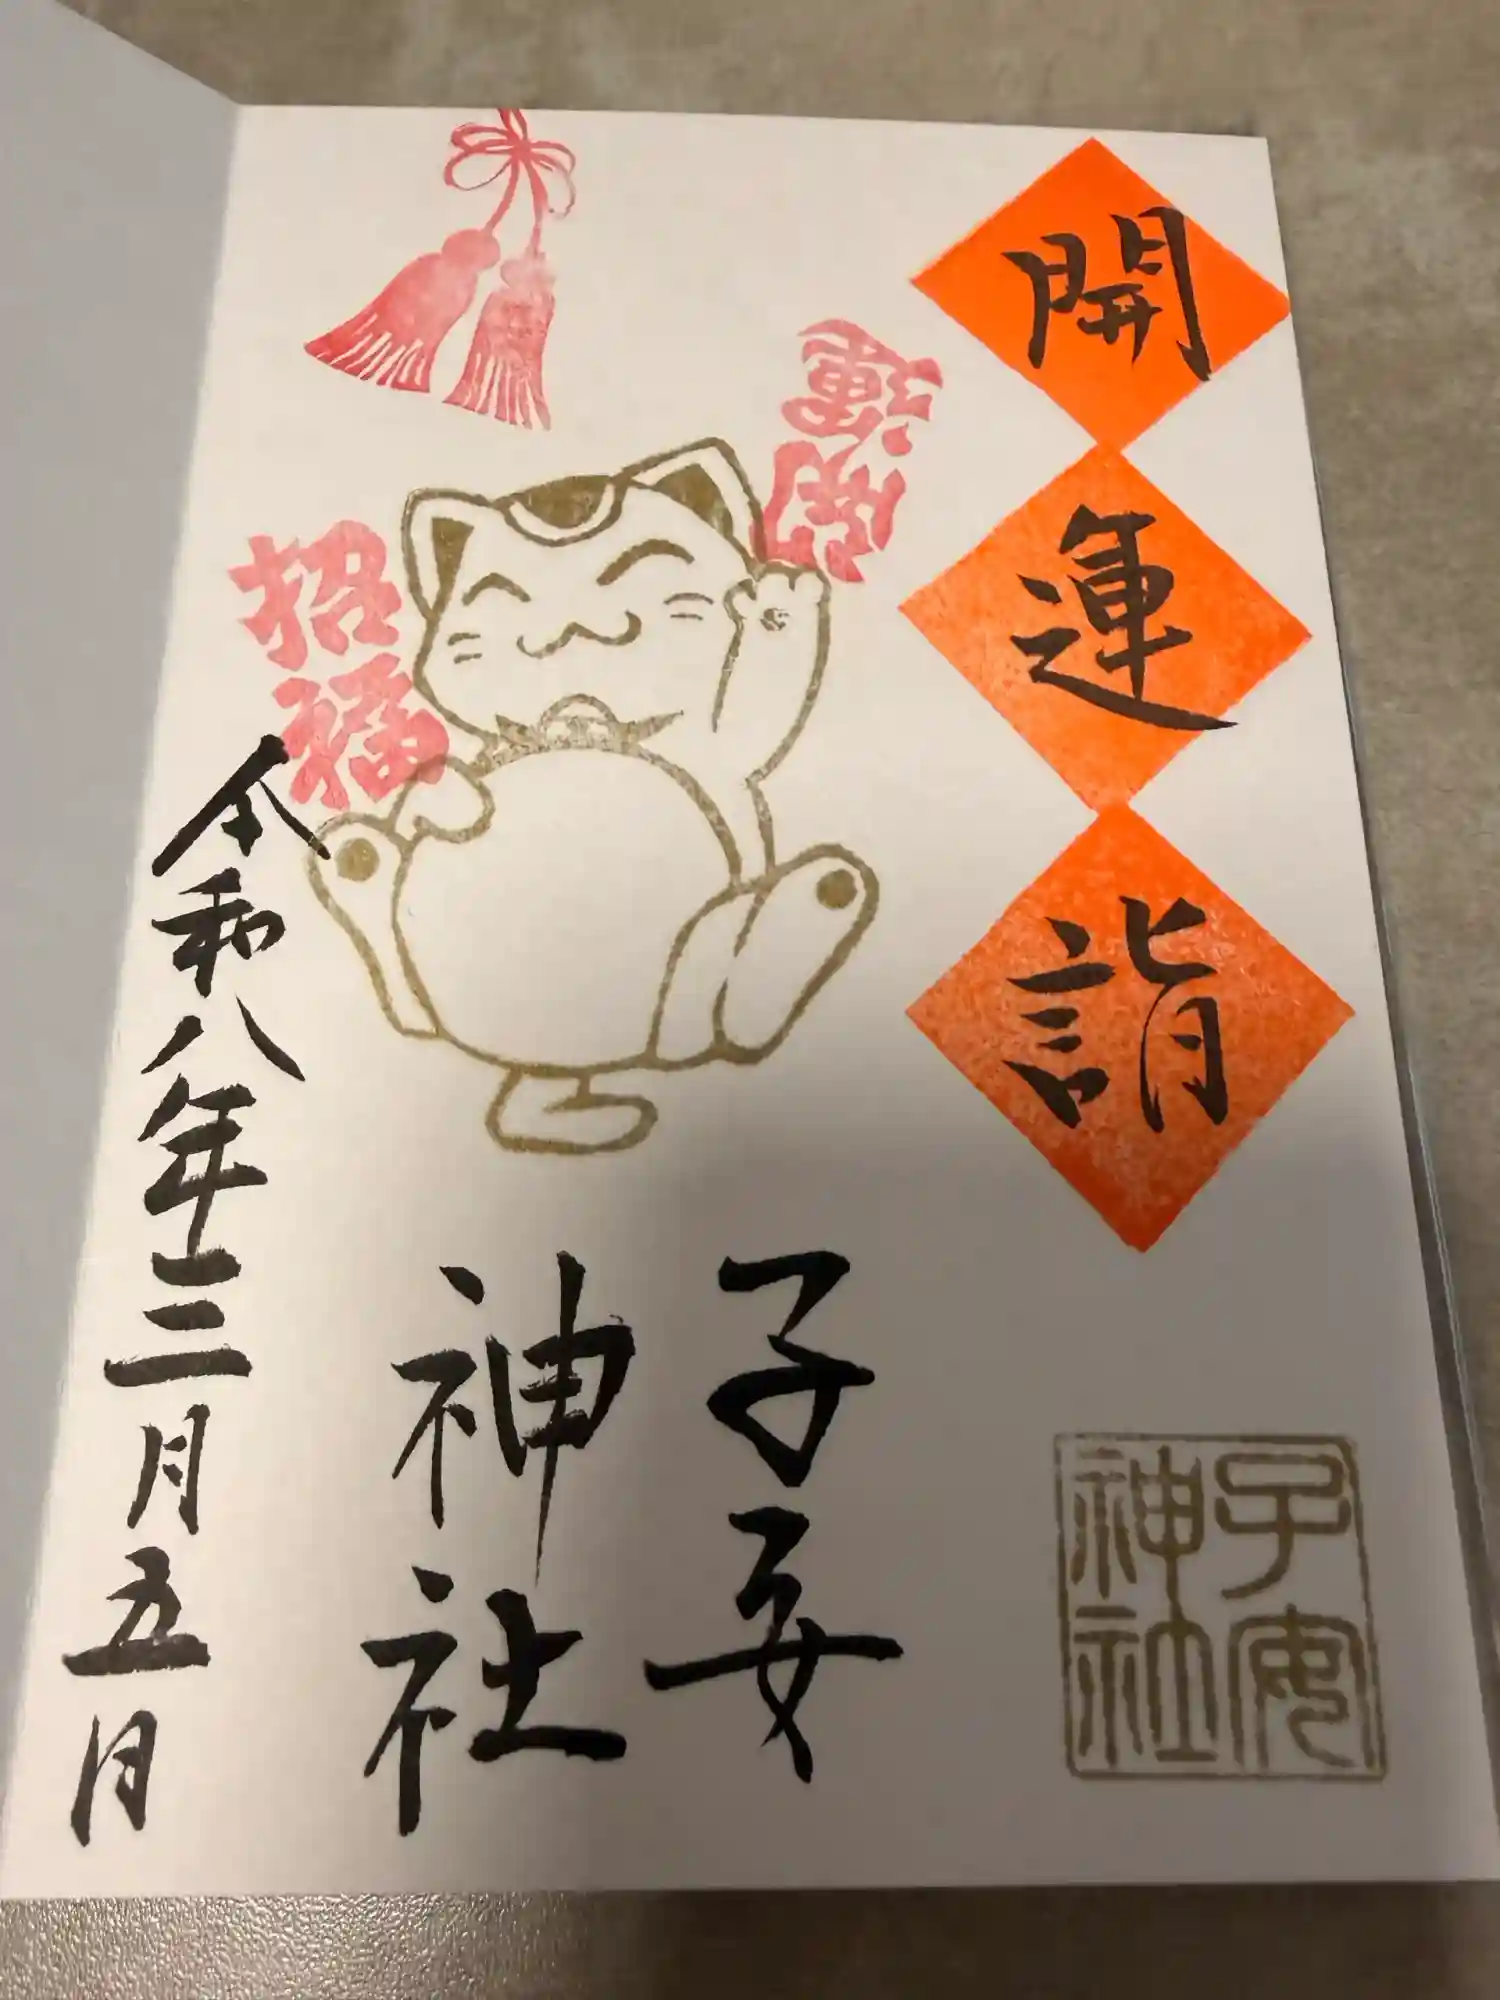 開運詣
開運
招福
子安
神社
令和八年三月五日
子安
神社